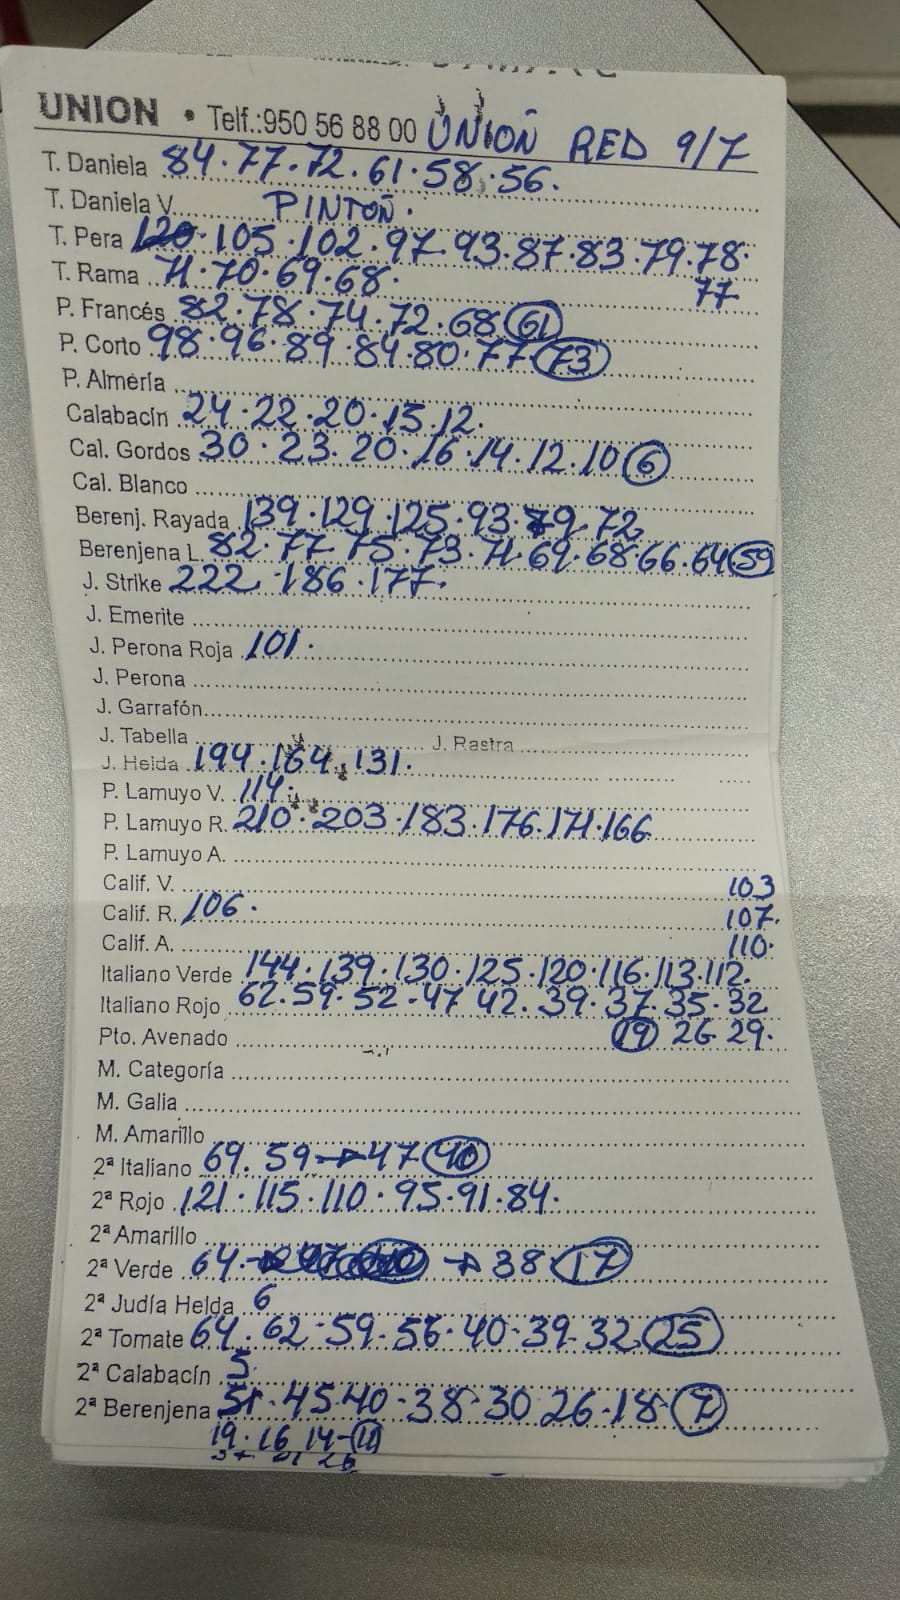 UNION • Telf.:950 56 88 00 UNION RED 9/7
T. Daniela 84·77·72·61·58·56.
T. Daniela V. PINTON.
T. Pera 120·105·102·97·93·87·83·79·78·
77
T. Rama 71·70·69·68·
P. Francés 82·78·74·72·68 61
P. Corto 98·96·89·84·80·77 73
P. Almería
Calabacín 24·22·20·15·12.
Cal. Gordos 30·23·20·16·14·12·10 6
Cal. Blanco
Berenj. Rayada 139·129·125·93·79·72
Berenjena L. 82·77·75·73·71·69·68 66·64 59
J. Strike 222·186·177.
J. Emerite
J. Perona Roja 101.
J. Perona
J. Garrafón
J. Tabella J. Rastra
J. Helda 194·164·131.
P. Lamuyo V. 114.
P. Lamuyo R. 210·203·183·176·171·166
P. Lamuyo A.
Calif. V. 103
Calif. R. 106. 107.
Calif. A. 110.
Italiano Verde 144·139·130·125·120·116·113·112.
Italiano Rojo 62·59·52·47 42·39·37·35·32
Pto. Avenado 19 26 29.
M. Categoría
M. Galia
M. Amarillo
2ª Italiano 69. 59→47 40
2ª Rojo 121·115·110·95·91·84·
2ª Amarillo
2ª Verde 64→ →38 17
2ª Judía Helda 6
2ª Tomate 64·62·59·56·40·39·32 25
2ª Calabacín 5.
2ª Berenjena 51·45 40·38·30 26·18 7
19·16 14-11